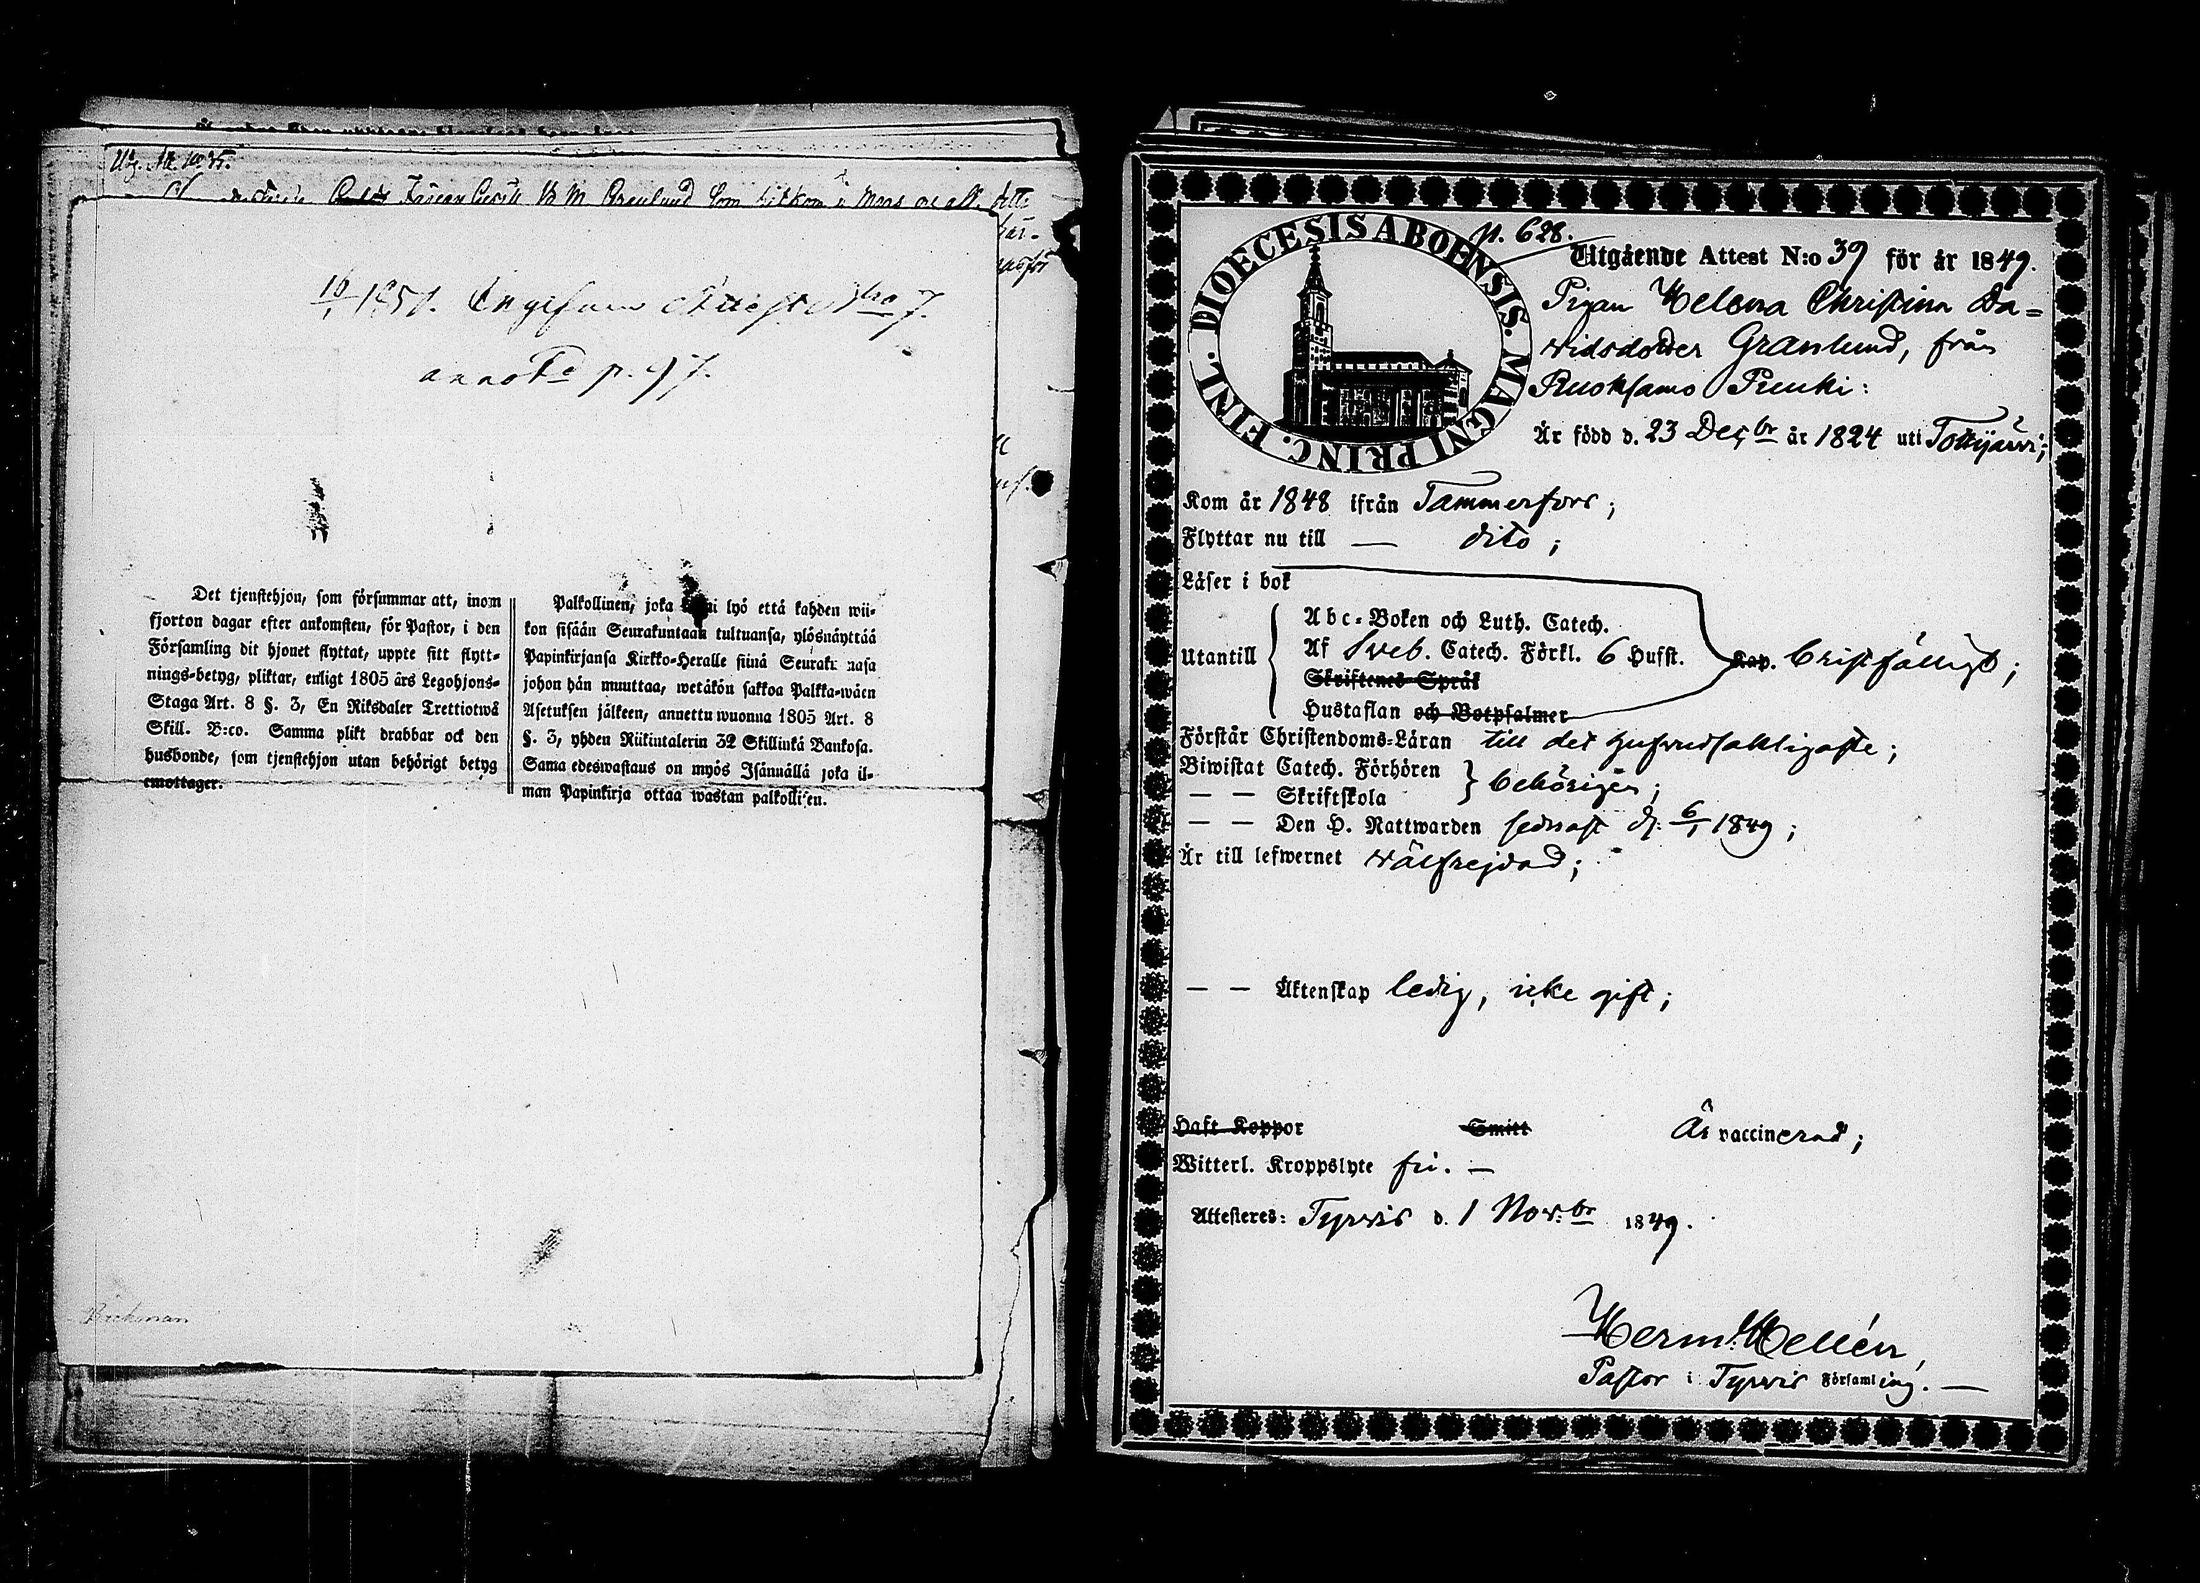 Utg. Att. No 35.
Granlund som hitkom
16/1 1850. Ingifven Attest No 7.
annot'd p. 97.
Det tjenstehjon, som försummar att, inom
fjorton dagar efter ankomsten, för Pastor, i den
Församling dit hjonet flyttat, uppte sitt flytt-
nings-betyg, pliktar, enligt 1805 års Legohjons-
Staga Art. 8 §. 3, En Riksdaler Trettiotwå
Skill. B:co. Samma plikt drabbar ock den
husbonde, som tjenstehjon utan behörigt betyg
emottager.
Palkollinen, joka lyö että kahden wii-
kon sisään Seurakuntaan tultuansa, ylösnäyttää
Papinkirjansa Kirkko-Herralle siinä Seuraku nasa
johon hän muuttaa, wetäkön sakkoa Palkka-wäen
Asetuksen jälkeen, annettu wuonna 1805 Art. 8
§. 3, yhden Riikintalerin 32 Skillinkä Bankosa.
Sama edeswastaus on myös Isännällä joka il-
man Papinkirja ottaa wastan palkollisen.
DIOECESIS ABOENSIS. MAGNI PRINC. FINL.
p. 628.
Utgående Attest N:o 39 för år 1849.
Pigan Helena Christina Da=
vidsdotter Granlund, från
Ruoksamo Prenki:
Är född d. 23 Dec:br år 1824 uti Tottijärvi;
Kom år 1848 ifrån Tammerfors;
Flyttar nu till — dito;
Läser i bok
Utantill
Abc-Boken och Luth. Catech.
Af Sveb. Catech. Förkl. 6 Hufst. Kap. bristfälligt;
Skriftenes Språk
Hustaflan och Botpsalmer
Förstår Christendoms-Läran till det hufvudsakligaste;
Biwistat Catech. Förhören
— — Skriftskola } behörigen;
— — Den H. Nattwarden sednast d. 6/1 1849;
Är till lefwernet välfrejdad;
— — Äktenskap ledig, icke gift;
Haft Koppor Smitt Är vaccinerad;
Witterl. Kroppslyte fri. —
Attesteres: Tyrvis d. 1 Nov:br 1849.
Herm. Hellén,
Pastor i Tyrvis Församling. —